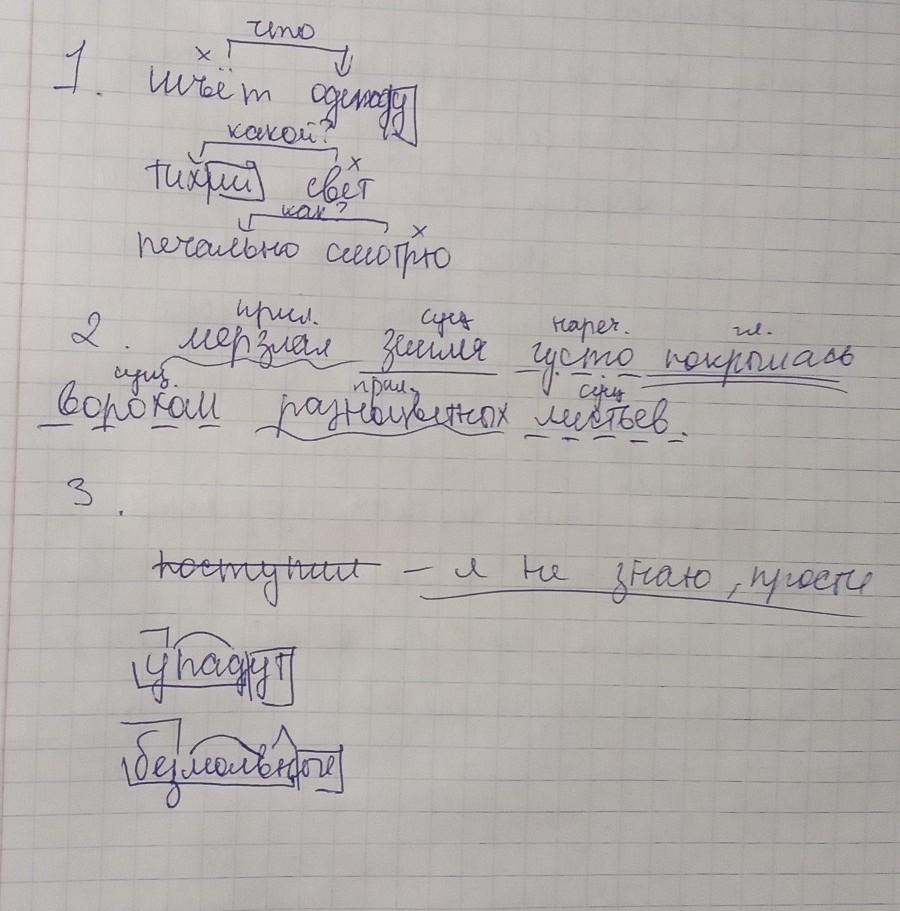 что
1. шьёт одежду
какой?
тихий свет
как?
печально смотрю
прил. сущ нареч. гл.
2. мерзлая земля густо покрылась
сущ. прил. сущ
ворохом разноцветных листьев.
3.
поступил – я не знаю, прости
упадут
безмолвные